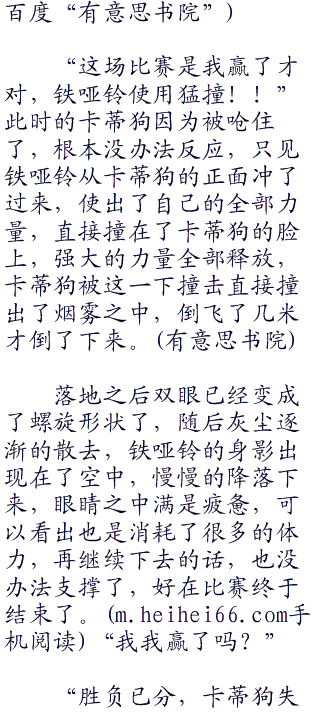 百度“有意思书院”)
“这场比赛是我赢了才
对，铁哑铃使用猛撞！！”
此时的卡蒂狗因为被呛住
了，根本没办法反应，只见
铁哑铃从卡蒂狗的正面冲了
过来，使出了自己的全部力
量，直接撞在了卡蒂狗的脸
上，强大的力量全部释放，
卡蒂狗被这一下撞击直接撞
出了烟雾之中，倒飞了几米
才倒了下来。(有意思书院)
落地之后双眼已经变成
了螺旋形状了，随后灰尘逐
渐的散去，铁哑铃的身影出
现在了空中，慢慢的降落下
来，眼睛之中满是疲惫，可
以看出也是消耗了很多的体
力，再继续下去的话，也没
办法支撑了，好在比赛终于
结束了。(m.heihei66.com手
机阅读)“我我赢了吗？”
“胜负已分，卡蒂狗失